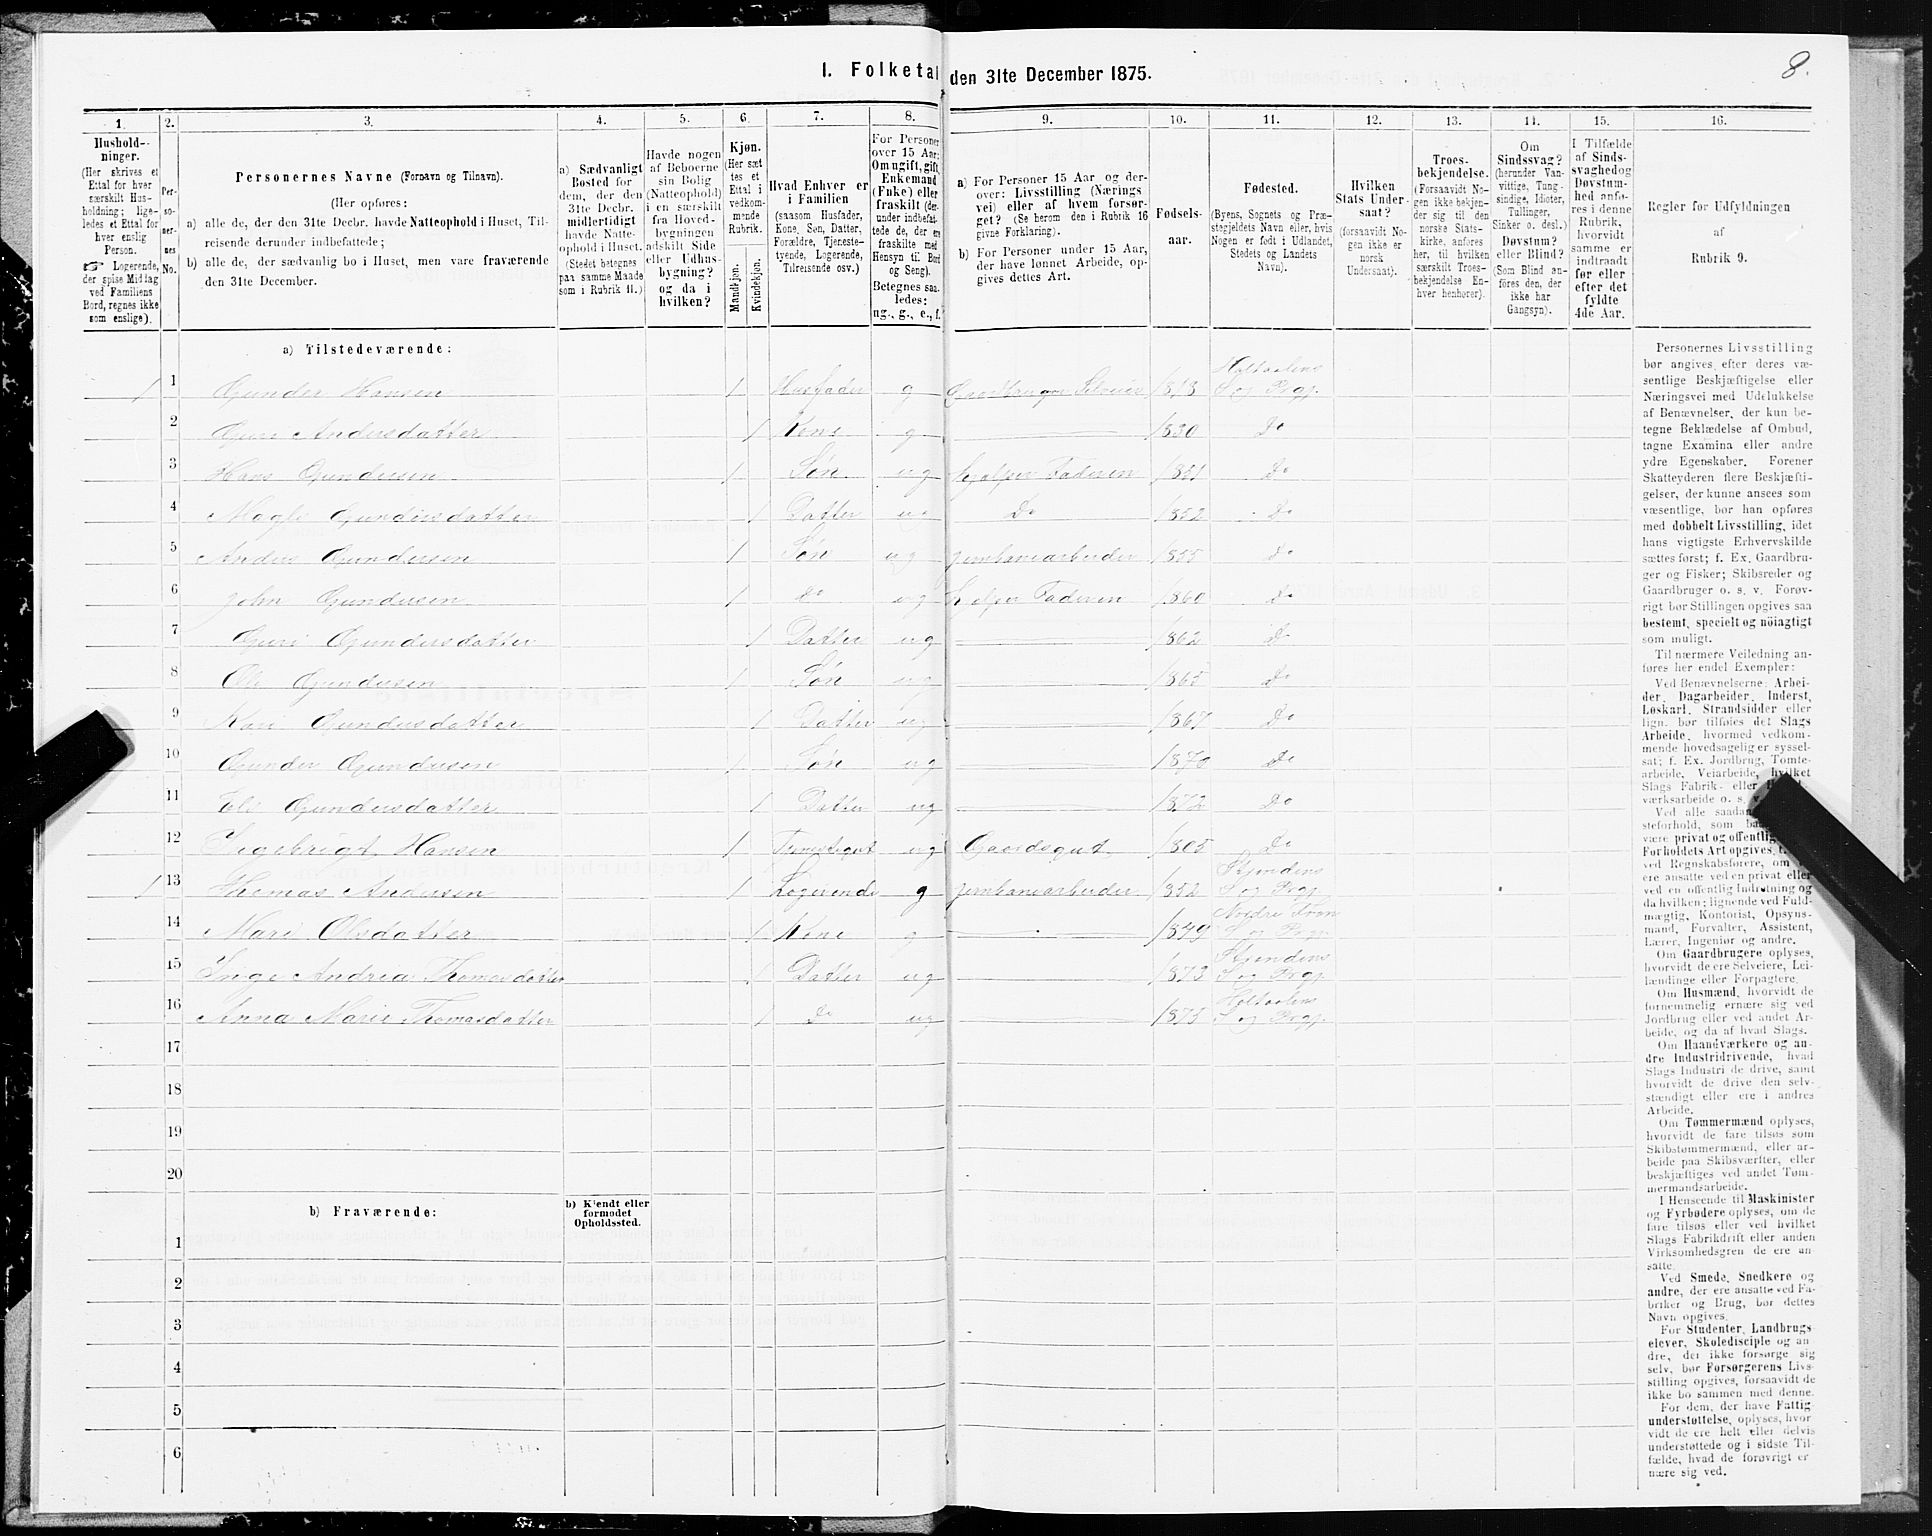 8.
I. Folketal den 31te December 1875.
1. 2. 3. 4. 5. 6. 7. 8. 9. 10. 11. 12. 13. 14. 15. 16.
Hushold-
ninger.
(Her skrives et
Ettal for hver
særskilt Hus-
holdning; lige-
ledes et Ettal for
hver enslig
Person.
☞ Logerende,
der spise Middag
ved Familiens
Bord, regnes ikke
som enslige).
Per-
so-
ner-
nes
No.
Personernes Navne (Fornavn og Tilnavn).
(Her opføres:
a) alle de, der den 31te Decbr. havde Natteophold i Huset, Til-
reisende derunder indbefattede;
b) alle de, der sædvanlig bo i Huset, men vare fraværende
den 31te December.
a) Sædvanligt
Bosted for
dem, der den
31te Decbr.
midlertidigt
havde Natte-
ophold i Huset.
(Stedet betegnes
paa samme Maade
som i Rubrik 11.)
Havde nogen
af Beboerne
sin Bolig
(Natteophold)
i en særskilt
fra Hoved-
bygningen
adskilt Side
eller Udhus-
bygning?
og da i
hvilken?
Kjøn.
(Her sæt
tes et
Ettal i
vedkom-
mende
Rubrik.
Mandkjøn.
Kvindekjøn.
Hvad Enhver er
i Familien
(saasom Husfader,
Kone, Søn, Datter,
Forældre, Tjeneste-
tyende, Logerende,
Tilreisende osv.)
For Personer
over 15 Aar:
Om ugift, gift,
Enkemand
(Enke) eller
fraskilt (der-
under indbefat-
tede de, der ere
fraskilte med
Hensyn til Bord
og Seng).
Betegnes saa-
ledes:
ug., g., e., f.
a) For Personer 15 Aar og der-
over: Livsstilling (Nærings
vei) eller af hvem forsør-
get? (Se herom den i Rubrik 16
givne Forklaring).
b) For Personer under 15 Aar,
der have lønnet Arbeide, op-
gives dettes Art.
Fødsels-
aar.
Fødested.
(Byens, Sognets og Præ-
stegjeldets Navn eller, hvis
Nogen er født i Udlandet,
Stedets og Landets
Navn).
Hvilken
Stats Under-
saat?
(forsaavidt No-
gen ikke er
norsk
Undersaat).
Troes-
bekjendelse.
(Forsaavidt No-
gen ikke bekjen-
der sig til den
norske Stats-
kirke, anføres
her, til hvilken
særskilt Troes-
bekjendelse En-
hver henhører).
Om
Sindssvag?
(herunder Van-
vittige, Tung-
sindige, Idioter,
Tullinger,
Sinker o. desl.)
Døvstum?
eller Blind?
(Som Blind an-
føres den, der
ikke har
Gangsyn).
I Tilfælde
af Sinds-
svaghed og
Døvstum-
hed anfø-
res i denne
Rubrik,
hvorvidt
samme er
indtraadt
før eller
efter det
fyldte
4de Aar.
Regler for Udfyldningen
af
Rubrik 9.
a) Tilstedeværende:
1 1 Gunder Hansen 1 Husfader g Gaardbruger Selveier 1818 Holtaalens S og Prgj.
2 Guri Andersdatter 1 Kone g 1830 Do
3 Hans Gundersen 1 Søn ug hjælper Faderen 1851 Do
4 Magli Gundersdatter 1 Datter ug Do 1852 Do
5 Anders Gundersen 1 Søn ug jernbanearbeider 1855 Do
6 John Gundersen 1 do ug hjelper Faderen 1860 Do
7 Guri Gundersdatter 1 Datter ug 1862 Do
8 Ole Gundersen 1 Søn ug 1865 Do
9 Kari Gundersdatter 1 Datter ug 1867 Do
10 Gunder Gundersen 1 Søn ug 1870 Do
11 Eli Gundersdatter 1 Datter ug 1872 Do
12 Ingebrigt Hansen 1 Tjenestegut ug Gaardsgut 1805 Do
1 13 Thomas Andersen 1 Logerende g jernbanearbeider 1852 Stjørdens S og Prgj.
14 Mari Olsdatter 1 Kone g 1849 Nordre Fron S og Prgj.
15 Inge Andrea Thomasdatter 1 Datter ug 1873 Stjørdens S og Prgj.
16 Anna Marie Thomasdatter 1 Do ug 1875 Holtaalens S og Prgj.
17
18
19
20
b) Fraværende:
b) Kjendt eller
formodet
Opholdssted.
1
2
3
4
5
6
Personernes Livsstilling
bør angives efter deres væ-
sentlige Beskjæftigelse eller
Næringsvei med Udelukkelse
af Benævnelser, der kun be-
tegne Beklædelse af Ombud,
tagne Examina eller andre
ydre Egenskaber. Forener
Skatteyderen flere Beskjæfti-
gelser, der kunne ansees som
væsentlige, bør han opføres
med dobbelt Livsstilling, idet
hans vigtigste Erhvervskilde
sættes først; f. Ex. Gaardbru-
ger og Fisker; Skibsreder og
Gaardbruger o. s. v. Forøv-
rigt bør Stillingen opgives saa
bestemt, specielt og nöiagtigt
som muligt.
Til nærmere Veiledning an-
føres her endel Exempler:
Ved Benævnelserne: Arbei-
der, Dagarbeider, Inderst,
Løskarl, Strandsidder eller
lign. bør tilføies det Slags
Arbeide, hvormed vedkom-
mende hovedsagelig er syssel-
sat; f. Ex. Jordbrug, Tomte-
arbeide, Veiarbeide, hvilket
Slags Fabrik- eller
værksarbeide o. s. v.
Ved alle saadan
steforhold, som
være privat og offentlig
Forholdets Art opgives,
ved Regnskabsførere, om
ere ansatte ved en privat eller
ved en offentlig Indretning og
da hvilken; lignende ved Fuld-
mægtig, Kontorist, Opsyns-
mand, Forvalter, Assistent,
Lærer, Ingeniør og andre.
Om Gaardbrugere oplyses,
hvorvidt de ere Selveiere, Lei-
lændinge eller Forpagtere.
Om Husmænd, hvorvidt de
fornemmelig ernære sig ved
Jordbrug eller ved andet Ar-
beide, og da af hvad Slags.
Om Haandværkere og an-
dre Industridrivende, hvad
Slags Industri de drive, samt
hvorvidt de drive den selv-
stændigt eller ere i andres
Arbeide.
Om Tømmermænd oplyses,
hvorvidt de fare tilsøs som
Skibstømmermænd, eller ar-
beide paa Skibsværfter, eller
beskjæftiges ved andet Tøm-
mermandsarbeide.
I Henseende til Maskinister
og Fyrbødere oplyses, om de
fare tilsøs eller ved hvilket
Slags Fabrikdrift eller anden
Virksomhedsgren de ere an-
satte.
Ved Smede, Snedkere og
andre, der ere ansatte ved Fa-
briker og Brug, bør dettes
Navn opgives.
For Studenter, Landbrugs-
elever, Skoledisciple og an-
dre, der ikke forsørge sig
selv, bør Forsørgerens Livs-
stilling opgives, forsaavidt de
ikke bo sammen med denne.
For dem, der have Fattig-
understøttelse, oplyses, hvor
vidt de ere helt eller delvis
understøttede og i sidste Til-
fælde, hvad de forøvrigt er
nære sig ved.